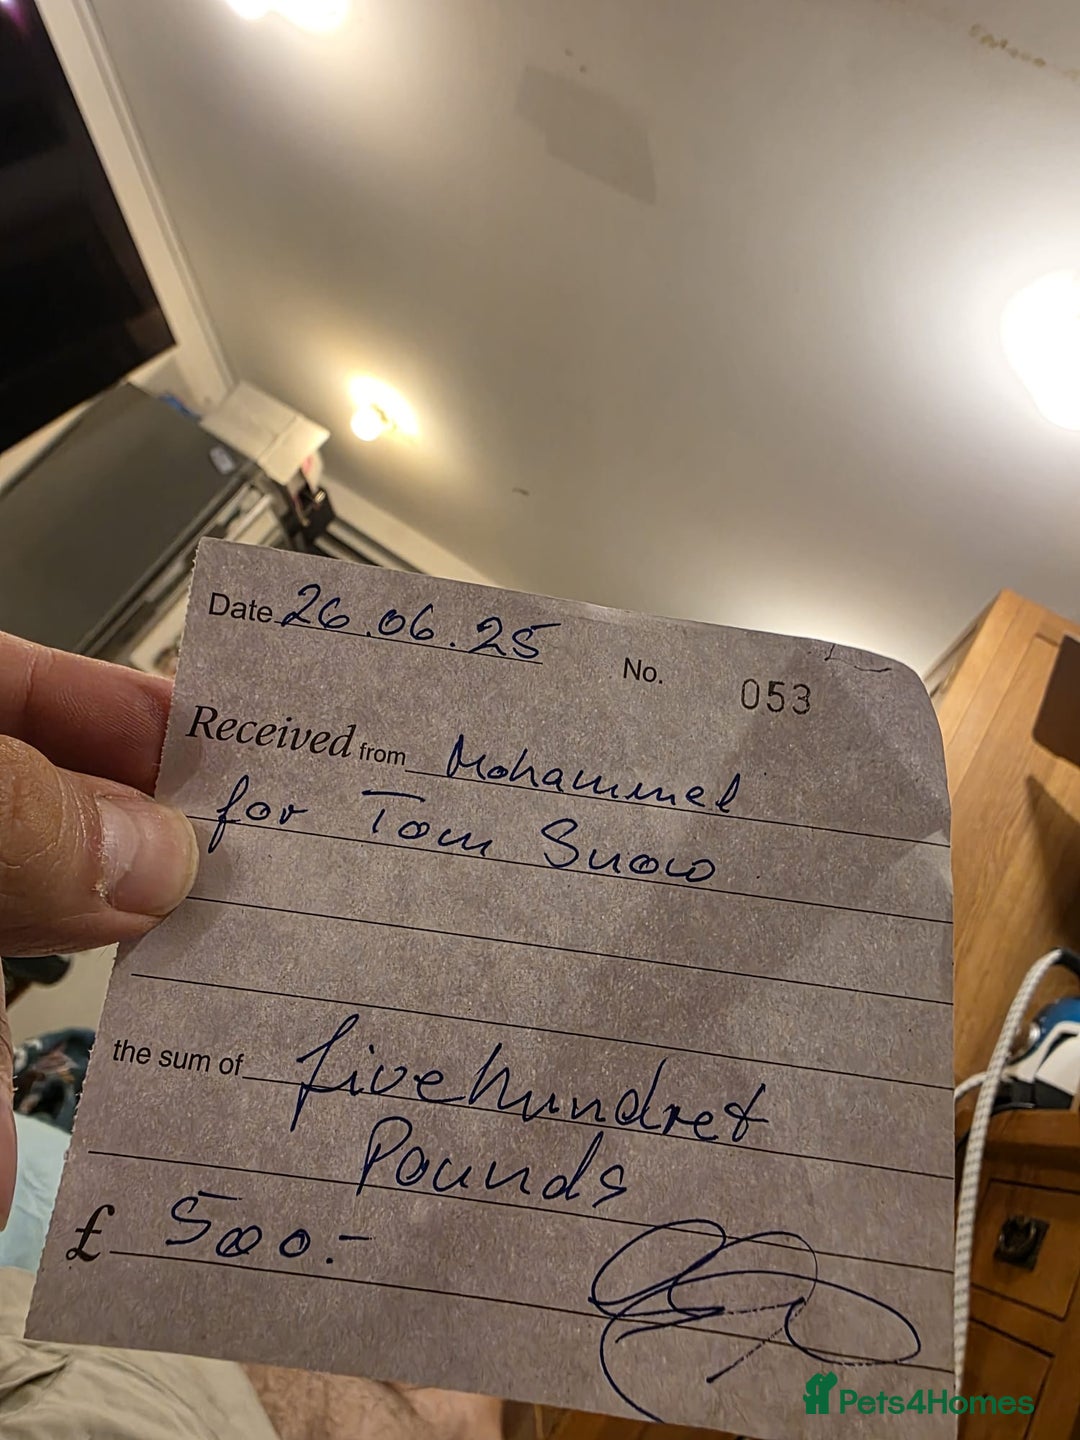 Date 26.06.25 No. 053
Received from Mohammed
for Tom Snow
the sum of fivehundret
Pounds
£ 500.-
Pets4Homes